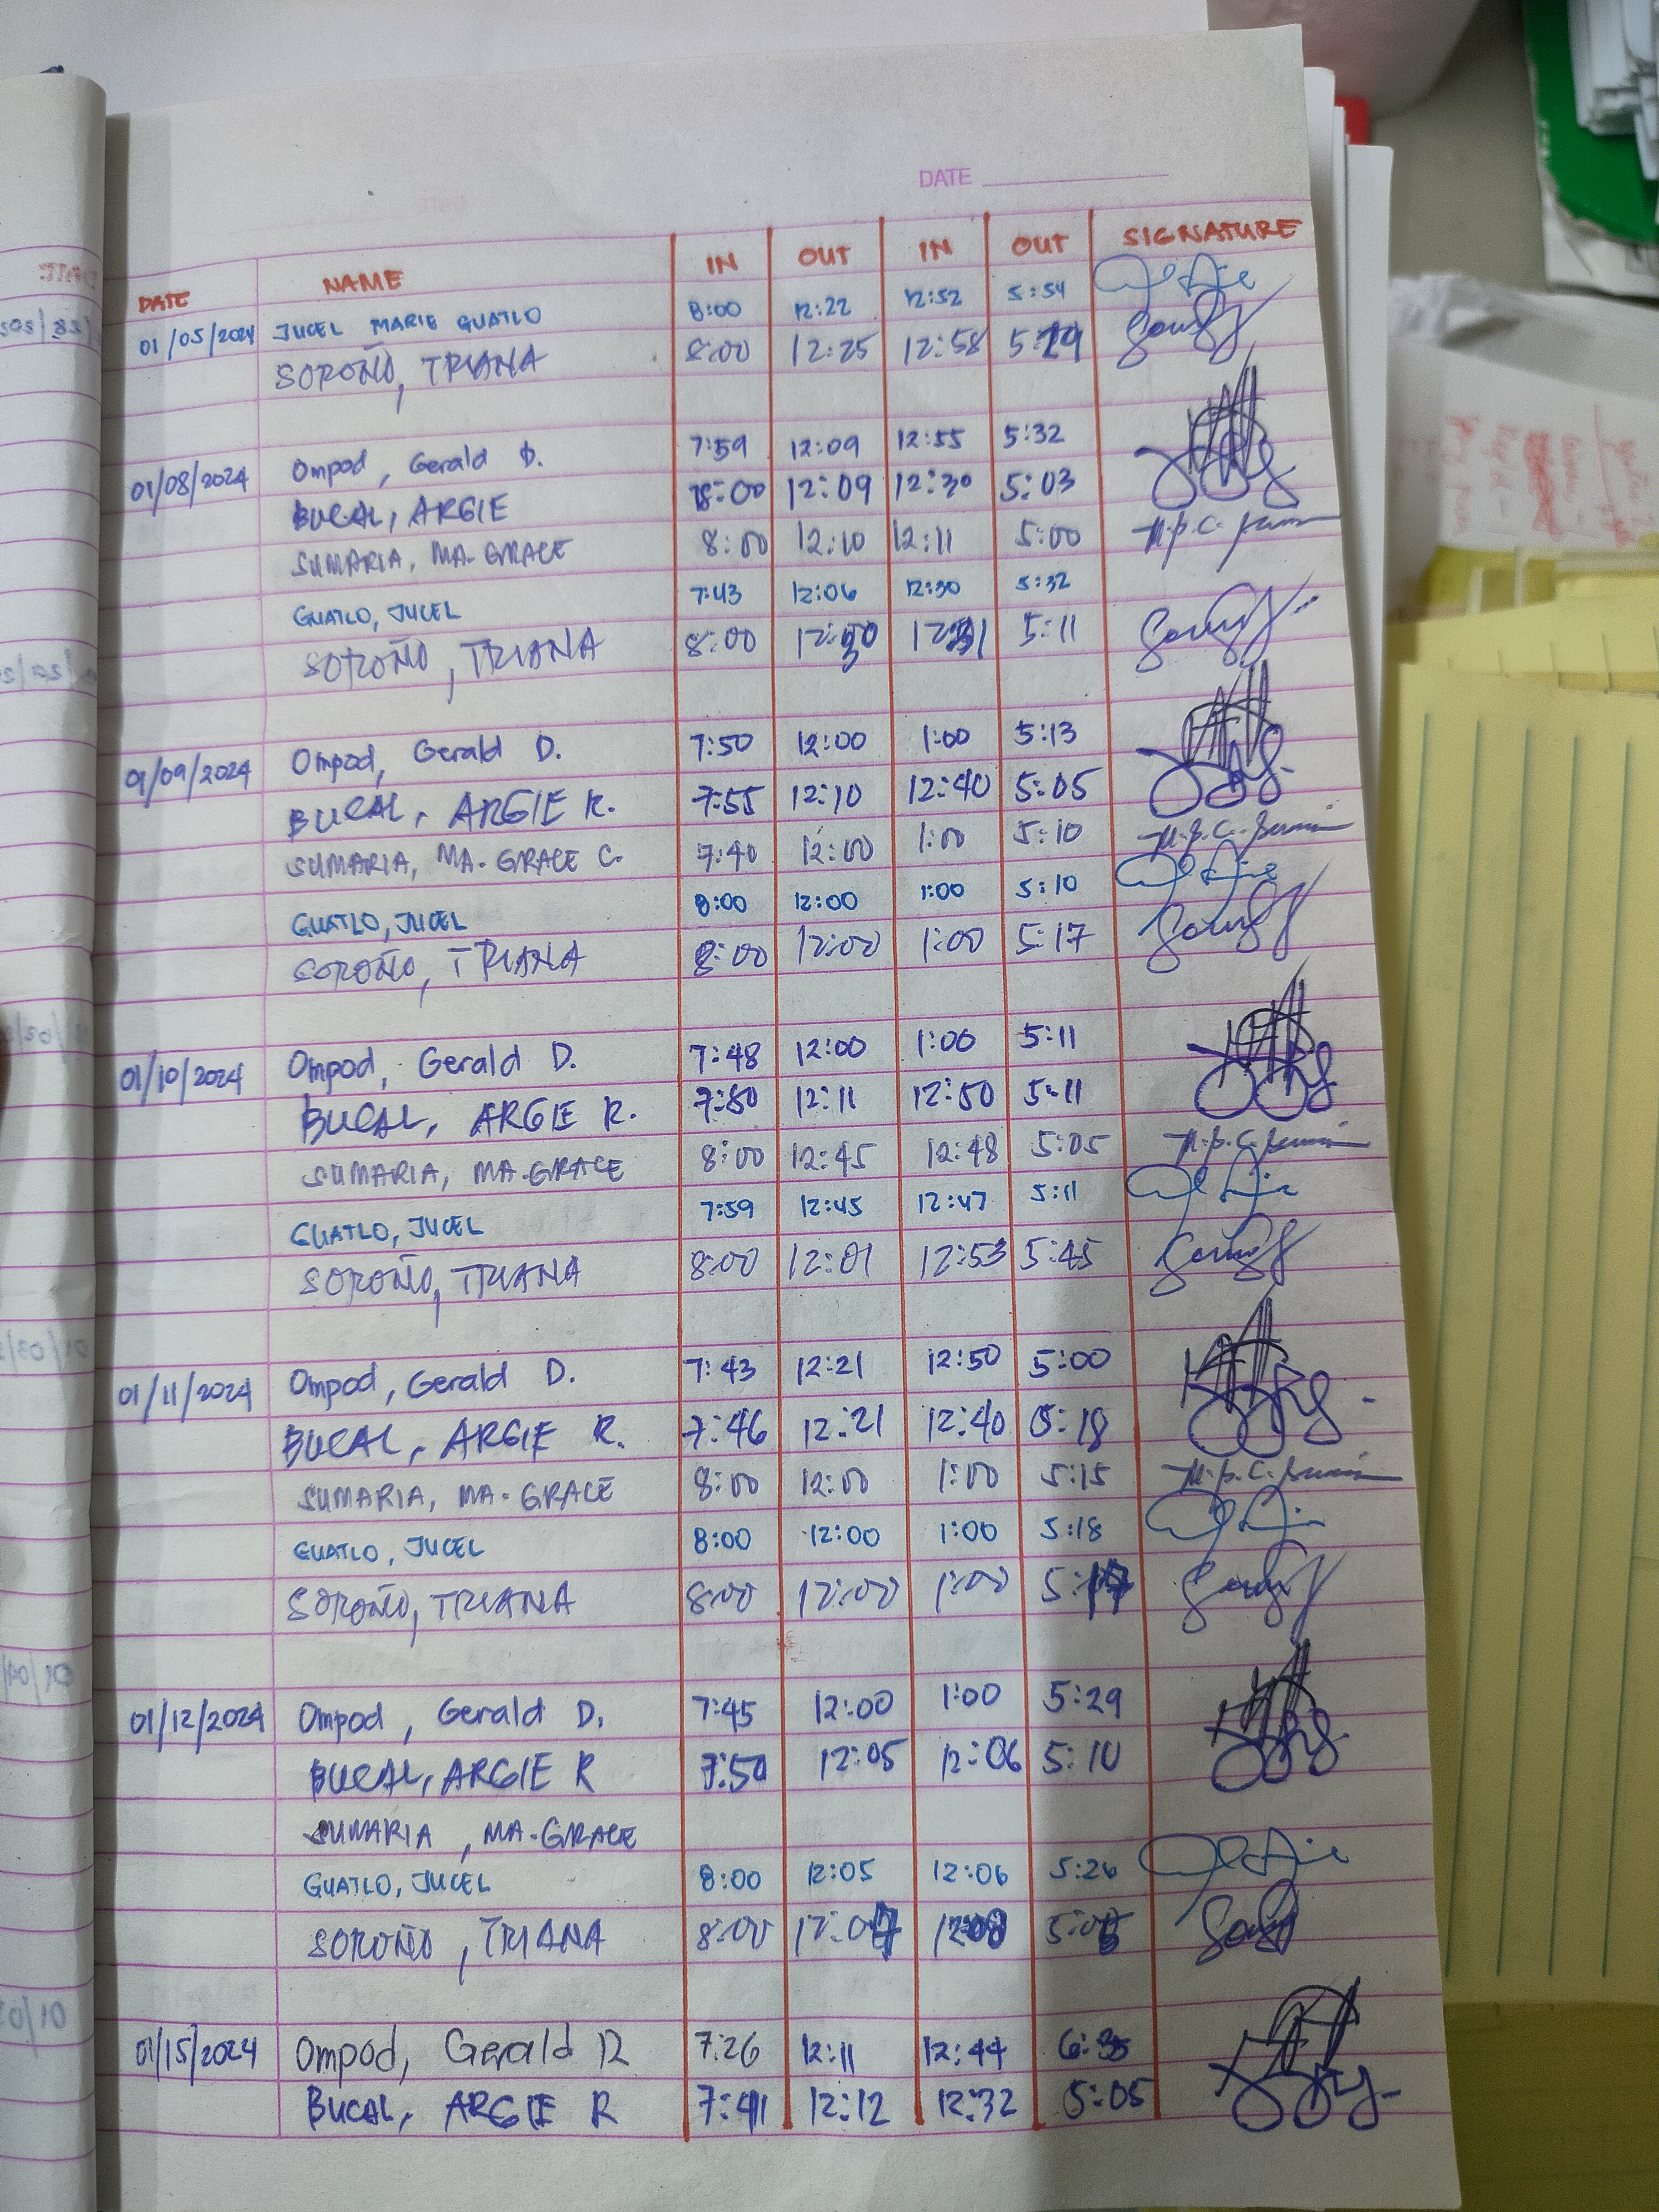 DATE
DATE NAME IN OUT IN OUT SIGNATURE
01/05/2024 JUCEL MARIE GUATLO 8:00 12:22 12:52 5:54
SOROÑO, TRIANA 8:00 12:25 12:58
01/08/2024 Ompod, Gerald D. 7:59 12:09 12:55 5:32
BUCAL, ARGIE 8:00 12:09 12:30 5:03
SUMARIA, MA. GRACE 8:00 12:10 12:11 5:00
GUATLO, JUCEL 7:43 12:06 12:30 5:32
SOROÑO, TRIANA 8:00 12:30 12:31 5:11
01/09/2024 Ompod, Gerald D. 7:50 12:00 1:00 5:13
BUCAL, ARGIE R. 7:55 12:10 12:40 5:05
SUMARIA, MA. GRACE C. 7:40 12:00 1:00 5:10
GUATLO, JUCEL 8:00 12:00 1:00 5:10
SOROÑO, TRIANA 8:00 12:00 1:00 5:17
01/10/2024 Ompod, Gerald D. 7:48 12:00 1:00 5:11
BUCAL, ARGIE R. 7:50 12:11 12:50 5:11
SUMARIA, MA. GRACE 8:00 12:45 12:48 5:05
GUATLO, JUCEL 7:59 12:45 12:47 5:11
SOROÑO, TRIANA 8:00 12:01 12:53 5:45
01/11/2024 Ompod, Gerald D. 7:43 12:21 12:50 5:00
BUCAL, ARGIE R. 7:46 12:21 12:40 5:18
SUMARIA, MA. GRACE 8:00 12:00 1:00 5:15
GUATLO, JUCEL 8:00 12:00 1:00 5:18
SOROÑO, TRIANA 8:00 12:00 1:00 5:17
01/12/2024 Ompod, Gerald D. 7:45 12:00 1:00 5:29
BUCAL, ARGIE R 7:50 12:05 12:06 5:10
SUMARIA, MA. GRACE
GUATLO, JUCEL 8:00 12:05 12:06 5:26
SOROÑO, TRIANA 8:00 12:07 12:08
01/15/2024 Ompod, Gerald D 7:26 12:11 12:44
BUCAL, ARGIE R 7:41 12:12 12:32 5:05